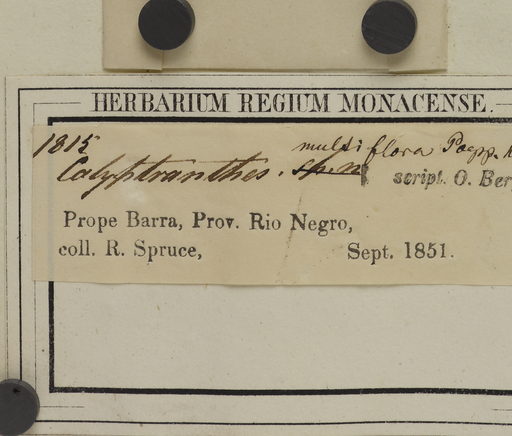 HERBARIUM REGIUM MONACENSE.
1815
multiflora Poepp.
Calyptranthes. sp. n
script. O. Ber
Prope Barra, Prov. Rio Negro,
coll. R. Spruce, Sept. 1851.